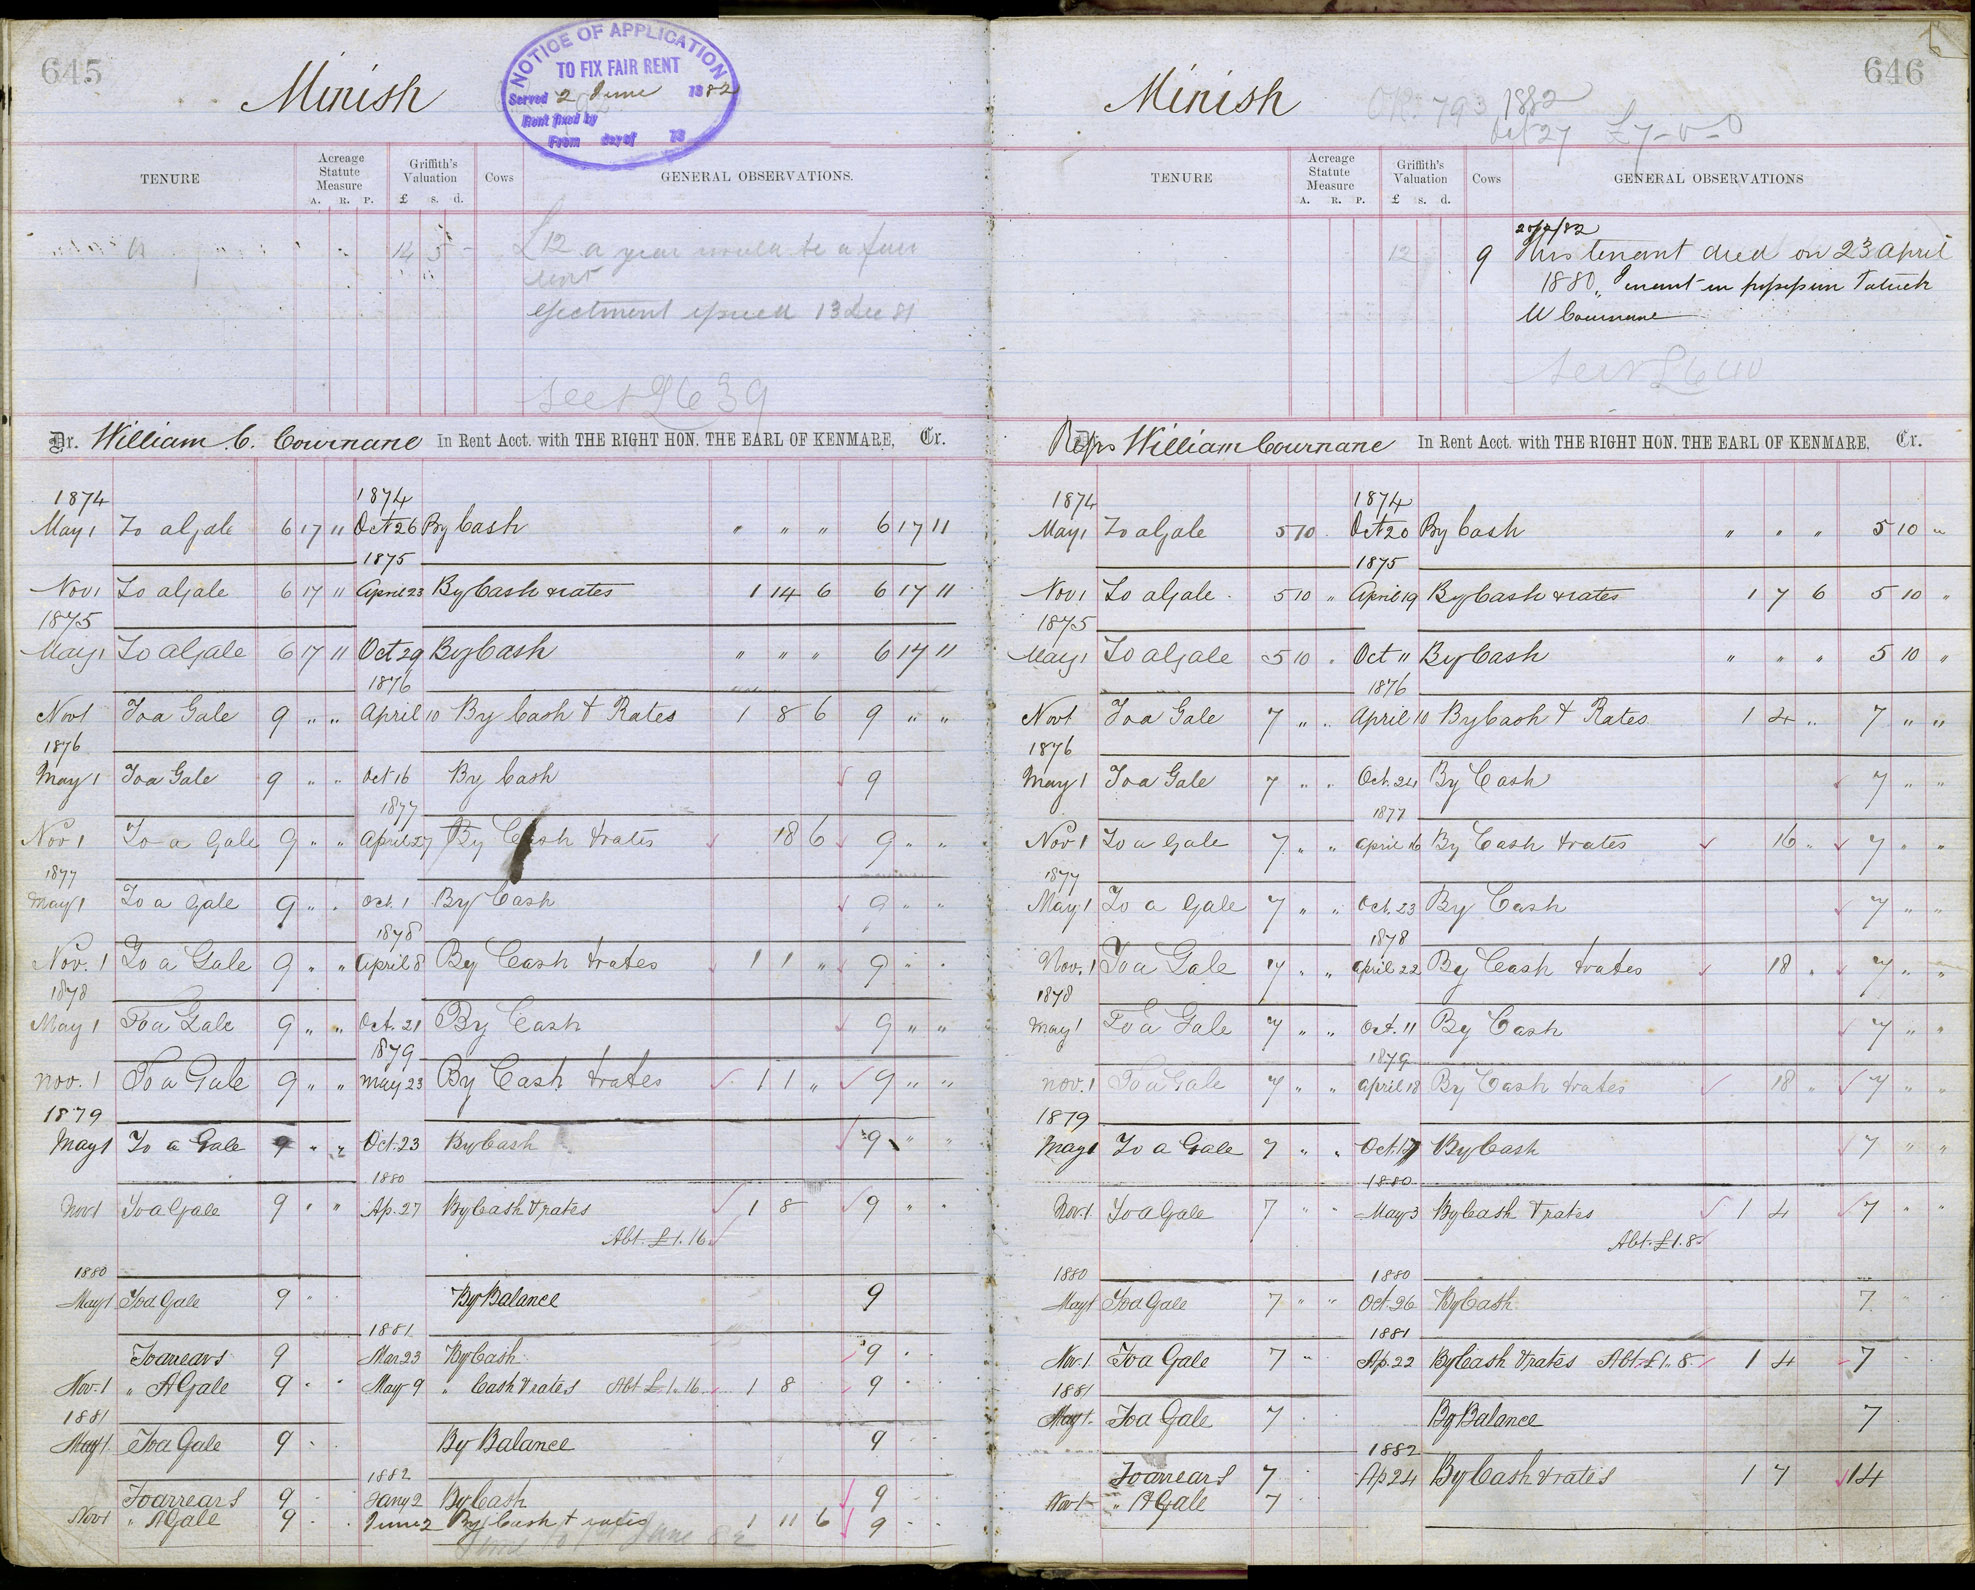 645
Minish
NOTICE OF APPLICATION
TO FIX FAIR RENT
Served 2 June 1882
Rent fixed by
From day of 18
TENURE Acreage Statute Measure A. R. P. Griffith's Valuation £ s. d. Cows GENERAL OBSERVATIONS.
14 5 -
£12 a year would be a fair
rent
ejectment issued 13 Dec 81
639
Dr. William C. Cournane In Rent Acct. with THE RIGHT HON. THE EARL OF KENMARE, Cr.
1874 1874
May 1 To a Gale 6 17 11 Oct 26 By Cash " " " 6 17 11
1875
Nov 1 To a Gale 6 17 11 April 23 By Cash & rates 1 14 6 6 17 11
1875
May 1 To a Gale 6 17 11 Oct 29 By Cash " " " 6 17 11
1876
Nov 1 To a Gale 9 " " April 10 By Cash & Rates 1 8 6 9 " "
1876
May 1 To a Gale 9 " " Oct 16 By Cash 9
1877
Nov 1 To a Gale 9 " " April 27 By Cash & rates 18 6 9 " "
1877
May 1 To a Gale 9 " " Oct. 1 By Cash 9 " "
1878
Nov. 1 To a Gale 9 " " April 8 By Cash & rates 1 1 " 9 " "
1878
May 1 To a Gale 9 " " Oct. 21 By Cash 9 " "
1879
Nov. 1 To a Gale 9 " " May 23 By Cash & rates 1 1 " 9 " "
1879
May 1 To a Gale 9 " " Oct. 23 By Cash 9 " "
1880
Nov 1 To a Gale 9 " " Ap. 27 By Cash & rates 1 8 9 " "
Abt. £1. 16
1880
May 1 To a Gale 9 " By Balance 9
1881
To arrears 9 Mar 23 By Cash 9 " "
Nov. 1 " A Gale 9 " " May 9 " Cash & rates Abt £1. 16 1 8 9 " "
1881
May 1 To a Gale 9 " By Balance 9 " "
1882
To arrears 9 Jany 2 By Cash 9 " "
Nov 1 " A Gale 9 June 2 By Cash & rates 1 11 6 9 " "
June 82
646
Minish
793 1882
Oct 27 £7-0-0
TENURE Acreage Statute Measure A. R. P. Griffith's Valuation £ s. d. Cows GENERAL OBSERVATIONS
12 9
This tenant died on 23 April
1880, Tenant in possession Patrick
W Cournane
640
Reps William Cournane In Rent Acct. with THE RIGHT HON. THE EARL OF KENMARE, Cr.
1874 1874
May 1 To a Gale 5 10 " Oct 20 By Cash " " " 5 10 "
1875
Nov 1 To a Gale 5 10 " April 19 By Cash & rates 1 7 6 5 10 "
1875
May 1 To a Gale 5 10 " Oct 11 By Cash " " " 5 10 "
1876
Nov 1 To a Gale 7 " " April 10 By Cash & Rates 1 4 " 7 " "
1876
May 1 To a Gale 7 " " Oct. 24 By Cash 7 " "
1877
Nov 1 To a Gale 7 " " April 16 By Cash & rates 16 " 7 " "
1877
May 1 To a Gale 7 " " Oct. 23 By Cash 7 " "
1878
Nov. 1 To a Gale 7 " " April 22 By Cash & rates 18 " 7 " "
1878
May 1 To a Gale 7 " " Oct. 11 By Cash 7 " "
1879
Nov. 1 To a Gale 7 " " April 18 By Cash & rates 18 " 7 " "
1879
May 1 To a Gale 7 " " Oct. 17 By Cash 7 " "
1880
Nov 1 To a Gale 7 " " May 3 By Cash & rates 1 4 7 " "
Abt. £1. 8
1880 1880
May 1 To a Gale 7 " " Oct. 26 By Cash 7 " "
1881
Nov. 1 To a Gale 7 " Ap. 22 By Cash & rates Abt £1. 8 1 4 7
1881
May 1 To a Gale 7 By Balance 7
1882
To arrears 7 Ap 24 By Cash & rates 1 7 14
Nov 1 " A Gale 7